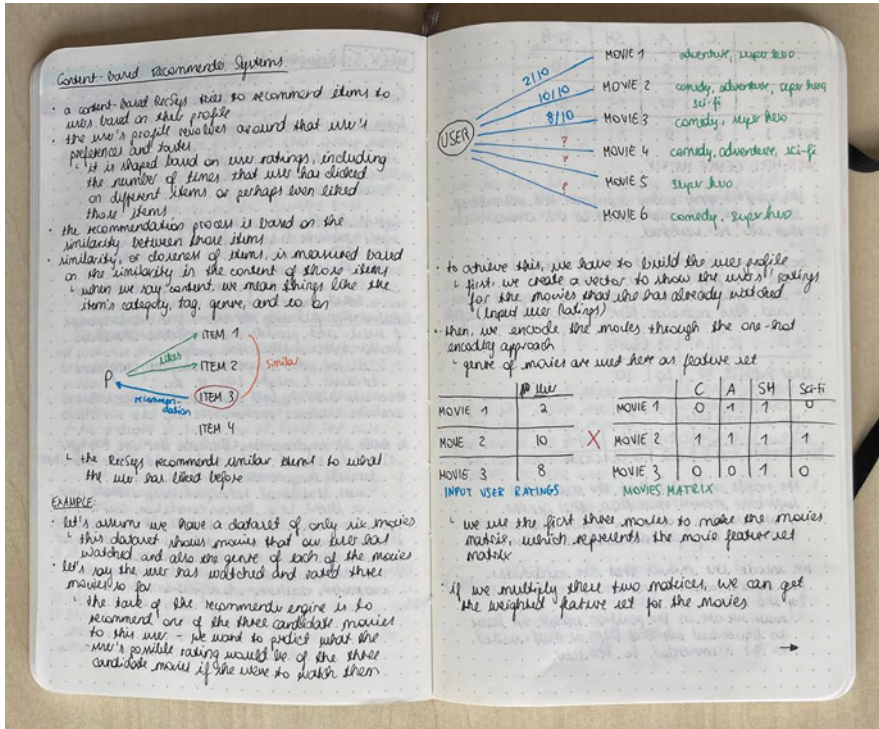 Content-based recommender Systems
· a content-based RecSys tries to recommend items to
users based on their profile
· the user's profile revolves around that user's
preferences and tastes
└ it is shaped based on user ratings, including
the number of times that user has clicked
on different items or perhaps even liked
those items
· the recommendation process is based on the
similarity between those items
· similarity, or closeness of items, is measured based
on the similarity in the content of those items
└ when we say content, we mean things like the
item's category, tag, genre, and so on
ITEM 1
likes
ITEM 2
similar
P
recommen-
dation
ITEM 3
ITEM 4
└ the RecSys recommends similar items to what
the user has liked before
EXAMPLE:
· let's assume we have a dataset of only six movies
└ this dataset shows movies that our user has
watched and also the genre of each of the movies
· let's say the user has watched and rated three
movies so far
└ the task of the recommender engine is to
recommend one of the three candidate movies
to this user - we want to predict what the
user's possible rating would be of the three
candidate movies if she were to watch them
USER
2/10 MOVIE 1 adventure, super hero
10/10 MOVIE 2 comedy, adventure, super hero
sci-fi
8/10 MOVIE 3 comedy, super hero
? MOVIE 4 comedy, adventure, sci-fi
? MOVIE 5 super hero
? MOVIE 6 comedy, super hero
· to achieve this, we have to build the user profile
└ first, we create a vector to show the user's ratings
for the movies that she has already watched
(Input User Ratings)
· then, we encode the movies through the one-hot
encoding approach
└ genre of movies are used here as feature set
User
MOVIE 1 2
MOVIE 2 10
MOVIE 3 8
INPUT USER RATINGS
X
C A SH Sci-fi
MOVIE 1 0 1 1 0
MOVIE 2 1 1 1 1
MOVIE 3 0 0 1 0
MOVIES MATRIX
└ we use the first three movies to make the movies
matrix, which represents the movie feature set
matrix
· if we multiply these two matrices, we can get
the weighted feature set for the movies
→